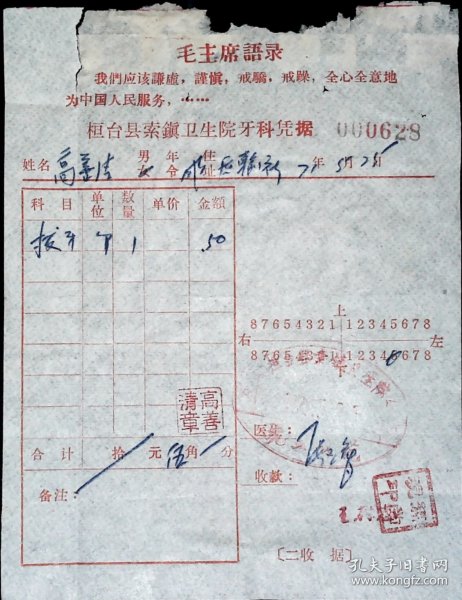 毛主席語录
我們应该謙虚，謹愼，戒驕，戒躁，全心全意地
为中国人民服务，……
桓台县索鎭卫生院牙科凭据 000628
姓名 男 女 年令 住址 年 月 日
科目 单位 数量 单价 金額
拔牙 个 1 .50
上
87654321 12345678
右 左
87654321 12345678
下
高善清章
医生：
合计 拾 元 伍 角 分
收款：
备注：
〔二收据〕
孔夫子旧书网
www.kongfz.com